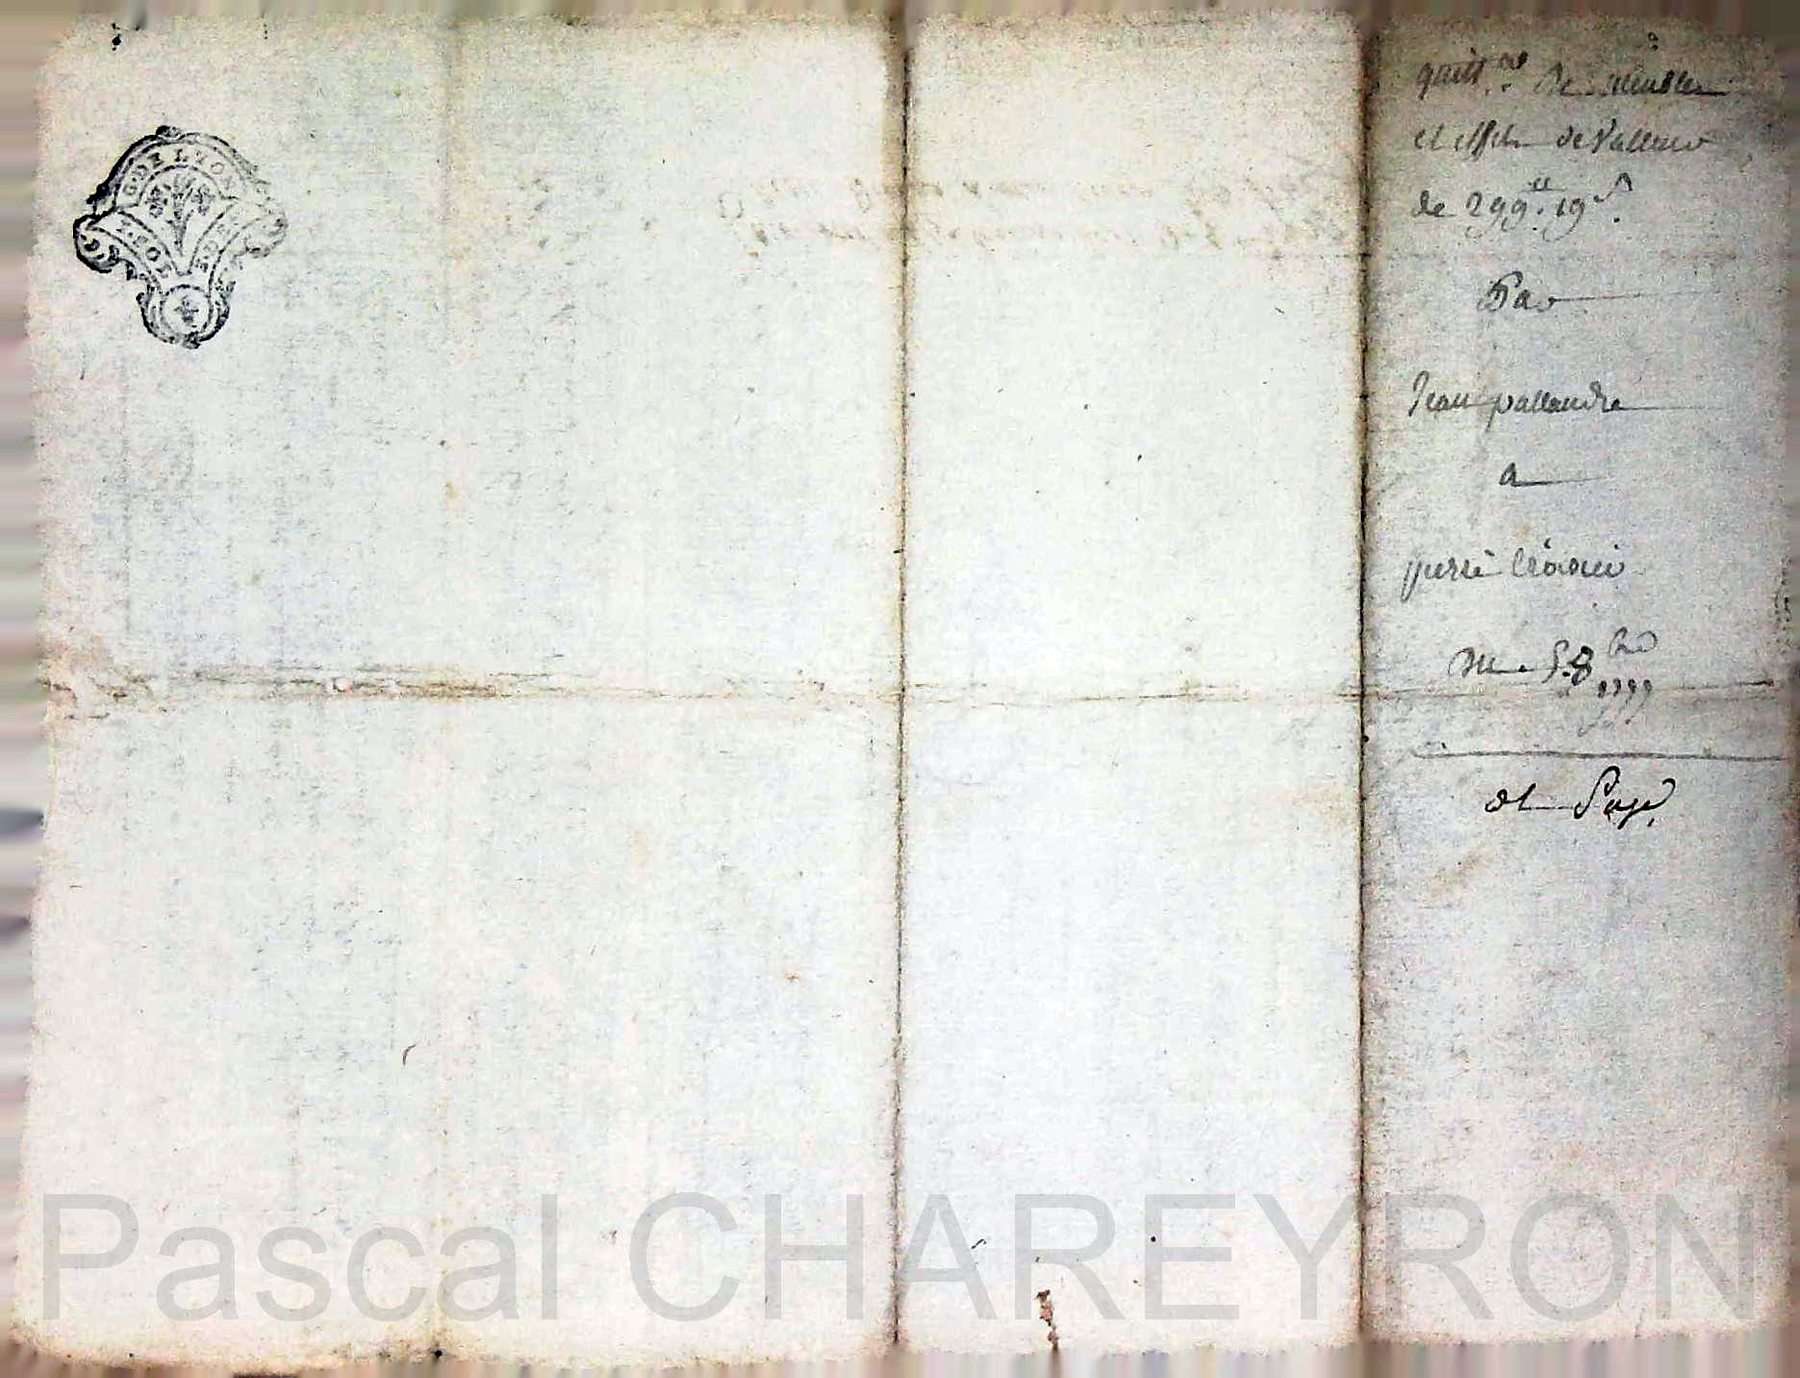 G. DE LYON
2. SOL
quitt.ce De meubles
et effets de Valleur
de 299.tt 19.s
Par
Jean pallandre
a
pierre
Du 5. 8bre
et Payé.
Pascal CHAREYRON